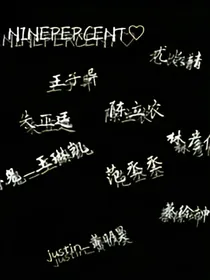 NINEPERCENT♡
尤长靖
王子异
朱正廷
陈立农
林彦俊
鬼_王琳凯
范丞丞
蔡徐坤
justin_黄明昊